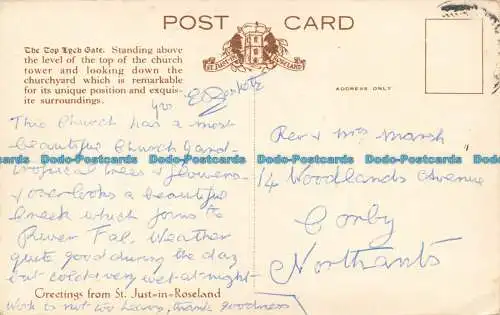 POST CARD
The Top Lych Gate. Standing above
the level of the top of the church
tower and looking down the
churchyard which is remarkable
for its unique position and exquis-
ite surroundings.
ST. JUST-IN-ROSELAND
ADDRESS ONLY
This Church has a most
beautiful Church yard-
tropical trees & flowers-
& overlooks a beautiful
creek which joins the
River Fal. Weather
quite good during the day
but cold & very wet at night-
Work is not too heavy, thank goodness
yrs
Greetings from St. Just-in-Roseland
Rev & Mrs Marsh
14 Woodlands Avenue
Corby
Northants
Dodo-Postcards Dodo-Postcards Dodo-Postcards Dodo-Postcards Dodo-Postcards